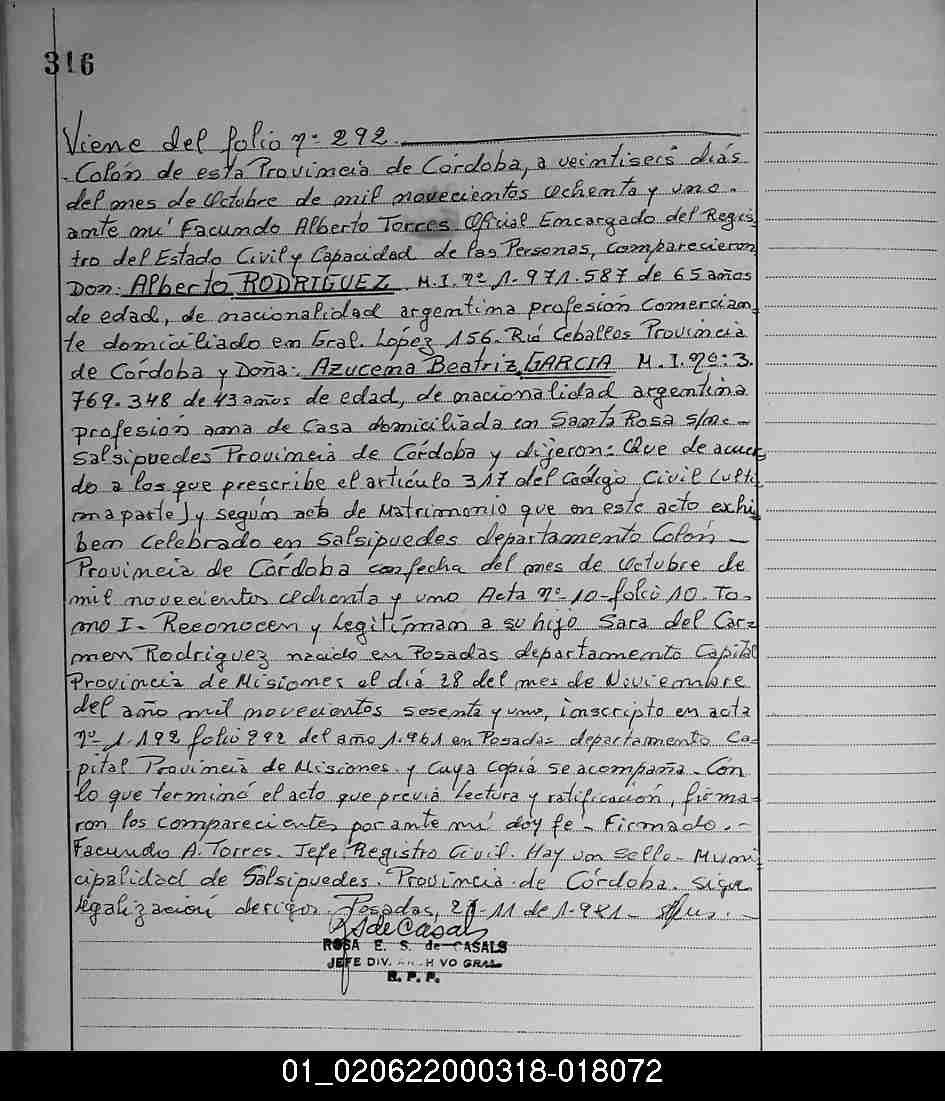 316
Viene del folio nº 292.
Colón de esta Provincia de Córdoba, a veintiseis días
del mes de Octubre de mil novecientos ochenta y uno.
ante mí Facundo Alberto Torres Oficial Encargado del Regis
tro del Estado Civil y Capacidad de las Personas, comparecieron
Don: Alberto RODRIGUEZ, M.I. nº 1.971.587 de 65 años
de edad, de nacionalidad argentina profesión Comercian
te domiciliado en Gral. López 156. Rió Ceballos Provincia
de Córdoba y Doña: Azucena Beatriz GARCIA M.I. nº: 3.
769.348 de 43 años de edad, de nacionalidad argentina
profesión ama de Casa domiciliada en Santa Rosa s/nº-
Salsipuedes Provincia de Córdoba y dijeron: Que de acuer
do a los que prescribe el artículo 317 del Código Civil (ulti
ma parte) y según acta de Matrimonio que en este acto exhi
ben celebrado en Salsipuedes departamento Colón -
Provincia de Córdoba con fecha del mes de Octubre de
mil novecientos ochenta y uno Acta nº 10-folio 10. To-
mo I- Reconocen y Legitiman a su hijo Sara del Car=
men Rodriguez nacido en Posadas departamento Capital
Provincia de Misiones el día 28 del mes de Noviembre
del año mil novecientos sesenta y uno, inscripto en acta
nº 1.192 folio 292 del año 1.961 en Posadas departamento Ca-
pital Provincia de Misiones. y Cuya Copia se acompaña. Con
lo que terminó el acto que previa lectura y ratificación, firma=
ron los comparecientes por ante mí doy fé- Firmado.-
Facundo A. Torres. Jefe Registro Civil. Hay un sello- Muni
cipalidad de Salsipuedes. Provincia de Córdoba. sigue
legalización de rigor. Posadas, 11 de 1.981-
RSdeCasals
ROSA E. S. de CASALS
JEFE DIV. ARCHIVO GRAL.
R. P. P.
01_020622000318-018072